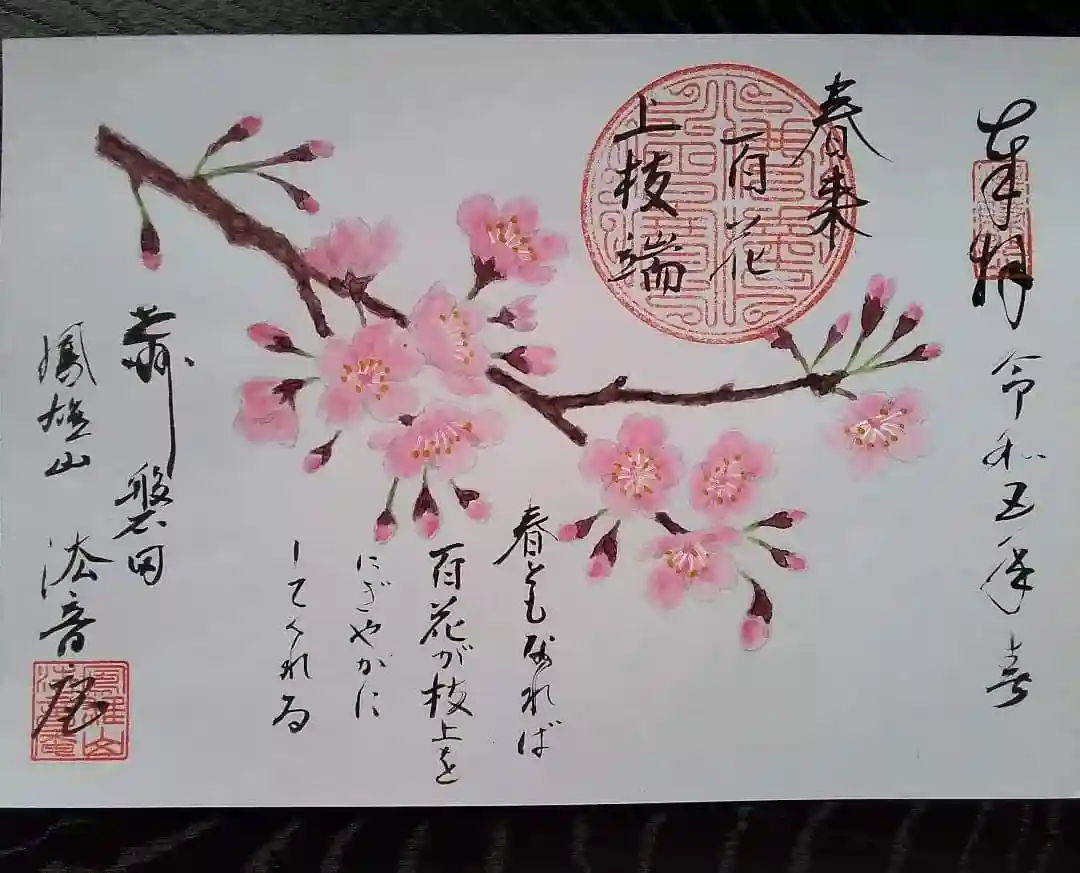 奉拝 令和五年春
春来
百花
上枝端
春ともなれば
百花が枝上を
にぎやかに
してくれる
磐田
鳳雄山 法音庵